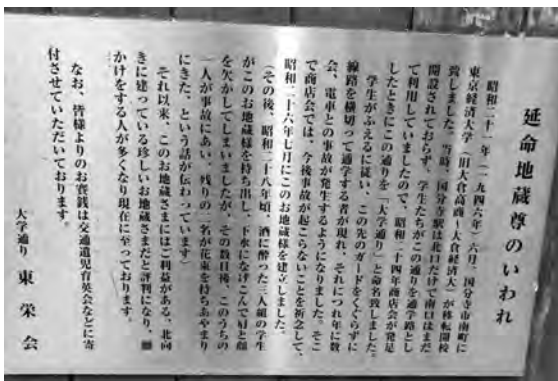 延命地蔵尊のいわれ
昭和二十一年（一九四六年）六月、国分寺市南町に
東京経済大学（旧大倉高商～大倉経済大）が移転開校
致しました。当時、国分寺駅は北口だけで南口はまだ
開設されておらず、学生たちがこの通りを通学路とし
て利用していましたので、昭和二十四年商店会が発足
したときにこの通りを「大学通り」と命名致しました。
学生がふえるに従い、この先のガードをくぐらずに
線路を横切って通学する者が現れ、それにつれ年に数
会、電車との事故が発生するようになりました。そこ
で商店会では、今後事故が起こらないことを祈念して、
昭和二十六年七月にこのお地蔵様を建立しました。
（その後、昭和二十八年頃、酒に酔った三人組の学生
がこのお地蔵様を持ち出し、下水になげこんで肩と顔
を欠かしてしまいましたが、その数日後、このうちの
一人が事故にあい、残りの二名が花束を持ちあやまり
にきた、という話が伝わっています）
それ以来、このお地蔵さまにはご利益がある、北向
きに建っている珍しいお地蔵さまだと評判になり、
かけをする人が多くなり現在に至っております。
なお、皆様よりのお賽銭は交通遺児育英会などに寄
付させていただいております。
大学通り 東栄会